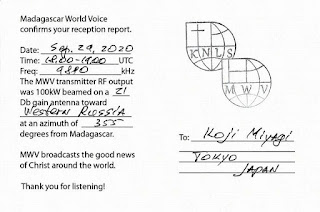 Madagascar World Voice
confirms your reception report.
Date: Sep. 29, 2020
Time: 18:00-19:00 UTC
Freq: 9880 kHz
The MWV transmitter RF output
was 100kW beamed on a 21
Db gain antenna toward
Western Russia
at an azimuth of 355
degrees from Madagascar.
MWV broadcasts the good news
of Christ around the world.
Thank you for listening!
KNLS
MWV
To: Koji Miyagi
Tokyo
Japan